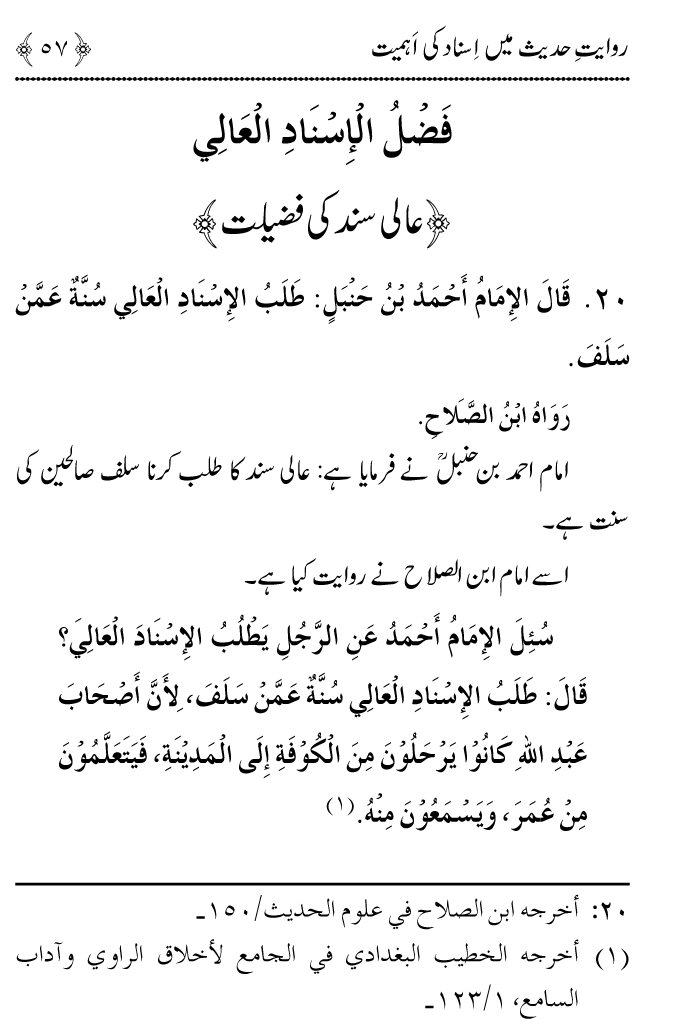 روایتِ حدیث میں اِسناد کی اَہمیت ﴿۵۷﴾
فَضْلُ الْإِسْنَادِ الْعَالِي
﴿عالی سند کی فضیلت﴾
۲۰. قَالَ الإِمَامُ أَحْمَدُ بْنُ حَنْبَلٍ: طَلَبُ الإِسْنَادِ الْعَالِي سُنَّةٌ عَمَّنْ
سَلَفَ.
رَوَاهُ ابْنُ الصَّلَاحِ.
امام احمد بن حنبلؒ نے فرمایا ہے: عالی سند کا طلب کرنا سلف صالحین کی
سنت ہے۔
اسے امام ابن الصلاح نے روایت کیا ہے۔
سُئِلَ الإِمَامُ أَحْمَدُ عَنِ الرَّجُلِ يَطْلُبُ الإِسْنَادَ الْعَالِيَ؟
قَالَ: طَلَبُ الإِسْنَادِ الْعَالِي سُنَّةٌ عَمَّنْ سَلَفَ، لِأَنَّ أَصْحَابَ
عَبْدِ اللهِ كَانُوْا يَرْحَلُوْنَ مِنَ الْكُوْفَةِ إِلَى الْمَدِيْنَةِ، فَيَتَعَلَّمُوْنَ
مِنْ عُمَرَ، وَيَسْمَعُوْنَ مِنْهُ.(۱)
۲۰: أخرجه ابن الصلاح في علوم الحديث/۱۵۰ـ
(۱) أخرجه الخطيب البغدادي في الجامع لأخلاق الراوي وآداب
السامع، ۱/۱۲۳ـ